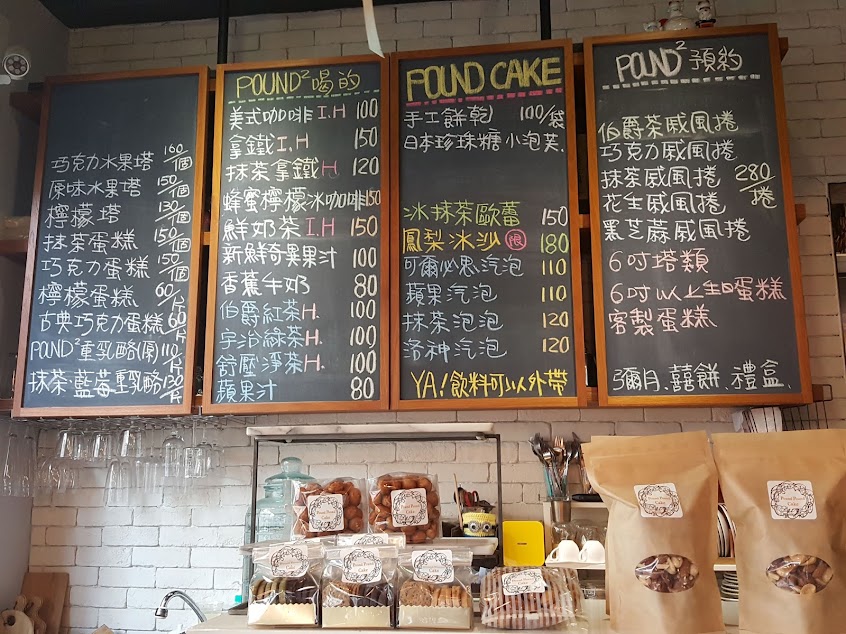 巧克力水果塔 160/個
原味水果塔 150/個
檸檬塔 130/個
抹茶蛋糕 150/個
巧克力蛋糕 150/個
檸檬蛋糕 60/片
古典巧克力蛋糕 60/片
POUND²重乳酪(原) 110/片
抹茶.藍莓重乳酪 130/片
POUND²喝的
美式咖啡 I.H 100
拿鐵 I.H 150
抹茶拿鐵 H 120
蜂蜜檸檬冰咖啡 150
鮮奶茶 I.H 150
新鮮奇異果汁 100
香蕉牛奶 80
伯爵紅茶 H. 100
宇治綠茶 H. 100
舒壓淨茶 H. 100
蘋果汁 80
POUND CAKE
手工餅乾 100/袋
日本珍珠糖小泡芙.
冰抹茶歐蕾 150
鳳梨冰沙 限 180
可爾必思汽泡 110
蘋果汽泡 110
抹茶泡泡 120
洛神汽泡 120
YA!飲料可以外帶
POUND²預約
伯爵茶戚風捲
巧克力戚風捲
抹茶戚風捲 280/捲
花生戚風捲
黑芝蔴戚風捲
6吋塔類
6吋以上生日蛋糕
客製蛋糕
彌月.囍餅.禮盒.